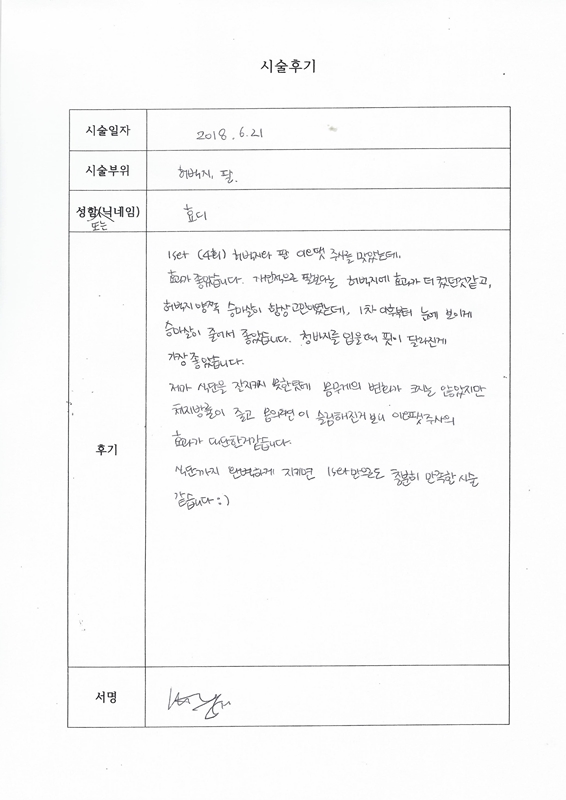 시술후기
시술일자
2018. 6. 21
시술부위
허벅지, 팔.
성함(닉네임)
또는
효디
후기
1set (4회) 허벅지와 팔 주사를 맞았는데,
효과가 좋았습니다. 개인적으론 팔보다는 허벅지에 효과가 더 컸던것같고,
허벅지 양쪽 승마살이 항상 고민이였는데, 1차 이후부터 눈에 보이게
승마살이 줄어서 좋았습니다. 청바지를 입을때 핏이 달라진게
가장 좋았습니다.
제가 식단을 잘지키지 못한탓에 몸무게의 변화가 크지는 않았지만
체지방률이 줄고 몸의라인이 슬림해진거 보니
효과가 대단한거같습니다.
식단까지 완벽하게 지키면 1set만으로도 충분히 만족할 시술
같습니다 :)
서명